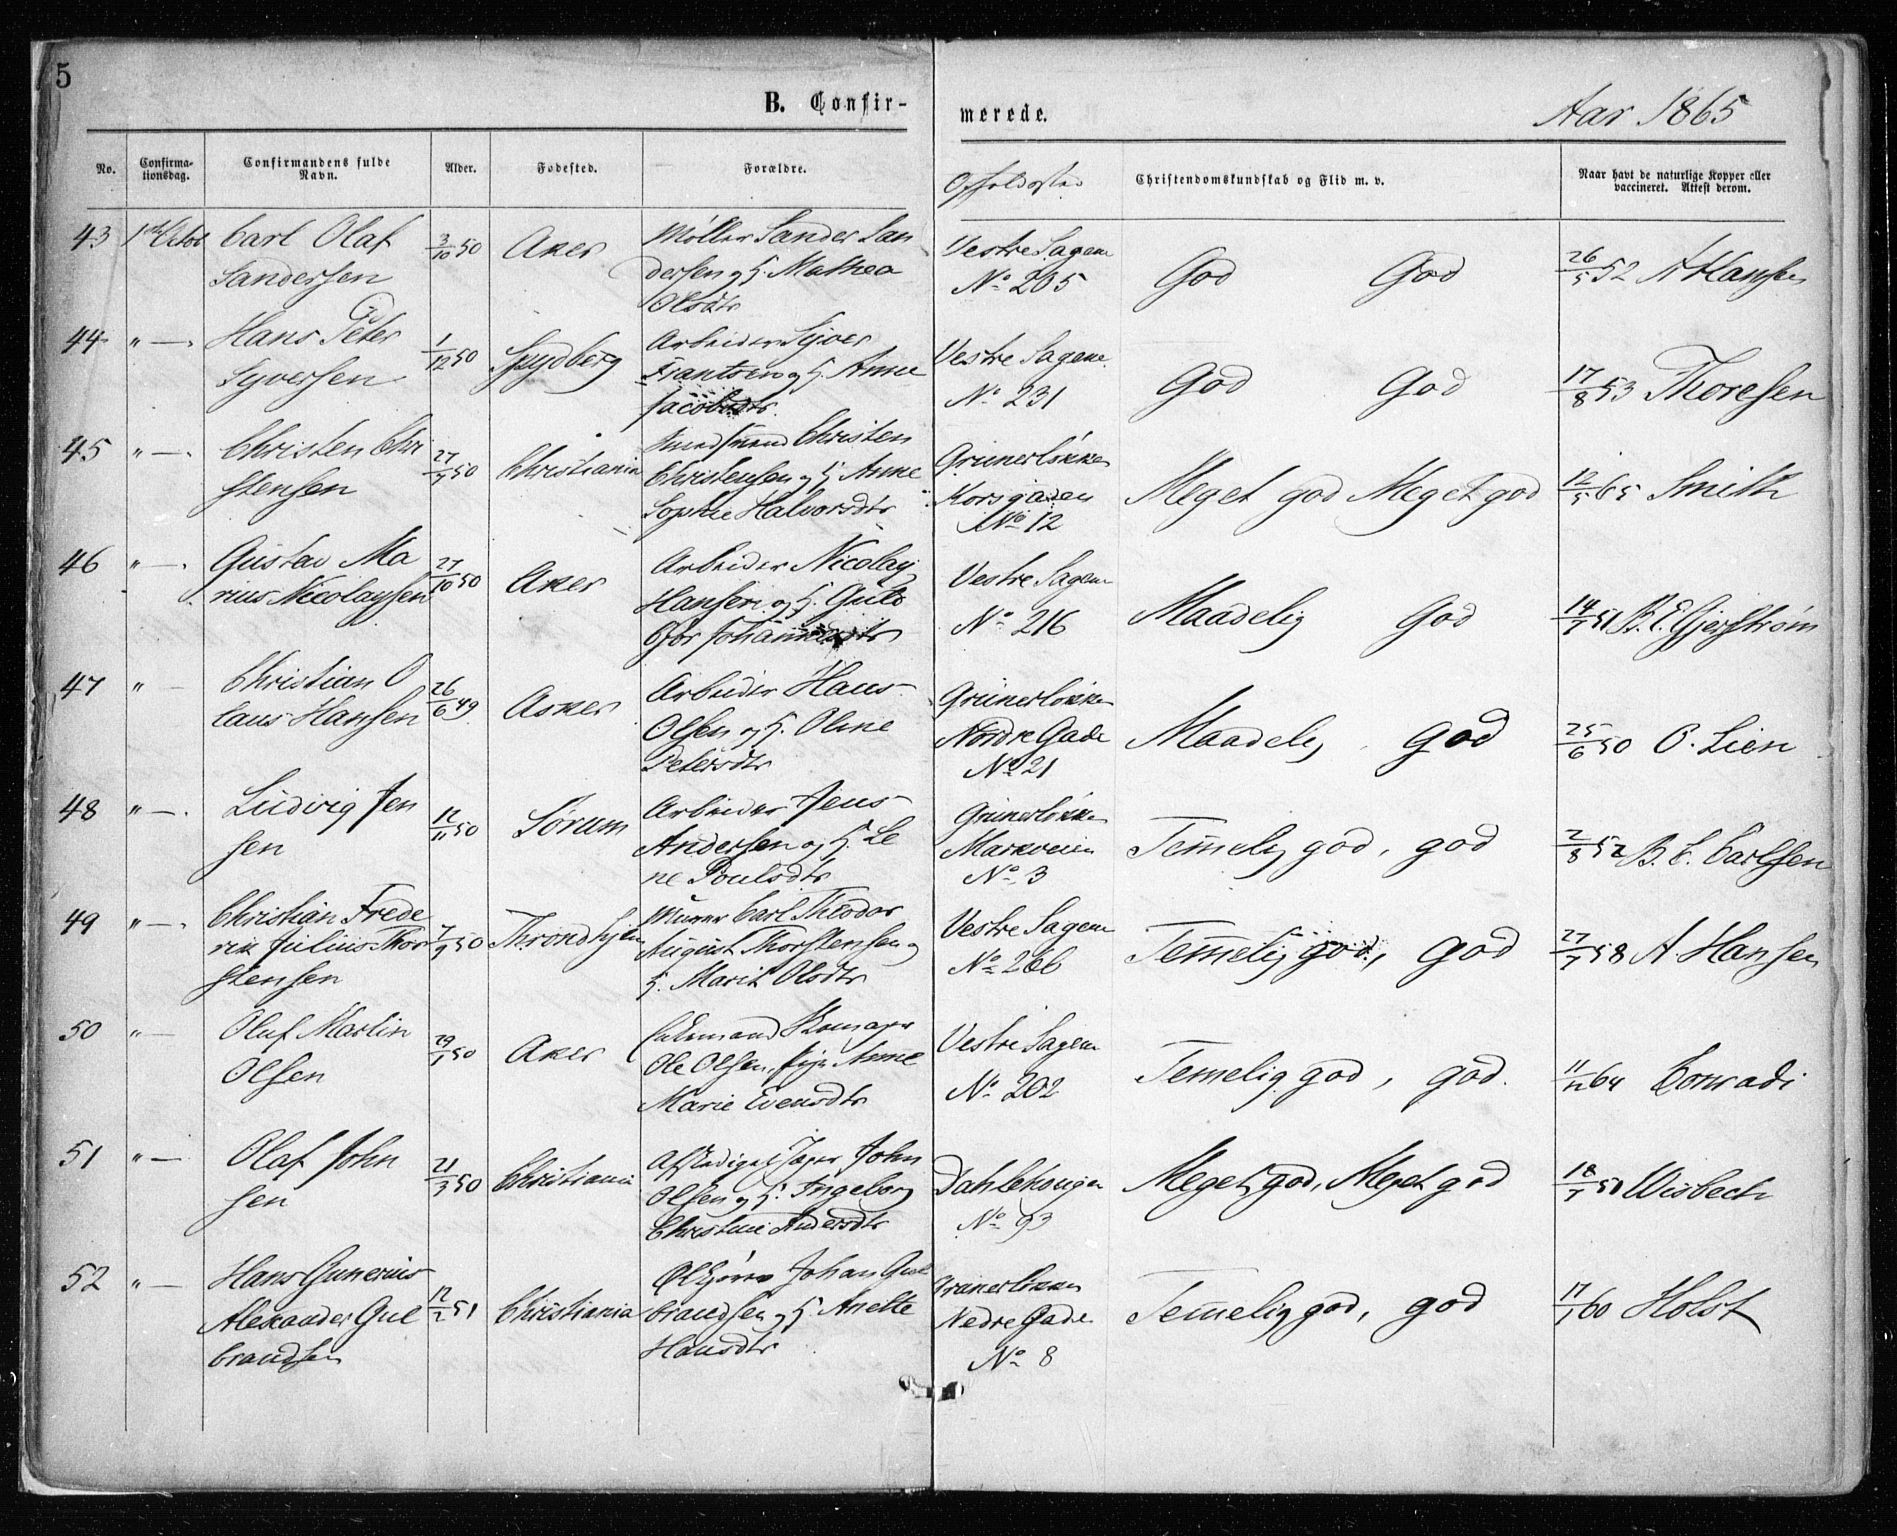 5
B. Confir-
merede.
Aar 1865
No.
Confirma-
tionsdag.
Confirmandens fulde
Navn.
Alder.
Fødested.
Forældre.
Opholdssted
Christendomskundskab og Flid m. v.
Naar havt de naturlige Kopper eller
vaccineret. Attest derom.
43 1ste Octob Carl Olaf
Sandersen
3/10 50 Aker
Møller Sander San
dersen og H. Mathea
Olsdtr
Vestre Sagene
No 205
God God
26/5 52 A Hansen
44 " —. Hans Peter
Syversen
1/12 50 Spydberg
Arbeider Syver
Frantsen og H. Anne
Jacobsdtr.
Vestre Sagene
No 231
God God
17/8 53 Thoresen
45 " —. Christen Chri
stensen
50 Christiania
Christen
Christensen og H. Anne
Sophie Halvorsdtr
Grünerløkken
Korsgaden
No 12
Meget god Meget god
12/5 65 Smith
46 " —. Gustav Ma
rius Nicolaysen
27/10 50 Aker
Arbeider Nicolay
Hansen og H. Guld
Johannesdtr
Vestre Sagene
No 216
Maadelig God
51 B. E. Gjerstrøm
47 " — Christian O
laus Hansen
26/6 49 Asker
Arbeider Hans
Olsen og H. Oline
Petersdtr
Grünerløkken
Nordre Gade
No 21
Maadelig God
25/6 50 O. Lien
48 " —. Ludvig Jen
sen
12/11 50 Sørum
Arbeider Jens
Andersen og H. Le
ne Poulsdtr
Grünerløkken
Markveien
No 3
Temelig god, god
2/8 52 B. C. Carlsen
49 " —. Christian Frede
rik Julius Thor
stensen
7/9 50 Throndhjem
Murer Carl Theodor
August Thorstensen og
H. Marit Olsdtr
Vestre Sagene
No 266
Temelig god, god
58 A. Hansen
50 " — Olaf Martin
Olsen
29/1 50 Aker
Enkemand Skomager
Ole Olsen, Pige Anne
Marie Evensdtr
Vestre Sagene
No 202
Temelig god, god.
64 Conradi
51 " — Olaf John
sen
21/3 50 Christiania
Afskediget Jæger John
Olsen og H. Ingeborg
Christine Andersdtr
Dahlehougen
No 93
Meget god, Meget god
Wisbech
52 " — Hans Gunerius
Alexander Gul
brandsen
12/2 51 Christiania
Johan Gul
brandsen og H. Anette
Hansdtr
Grünerløkken
Nedre Gade
No 8
Temelig god, god
60 Holst